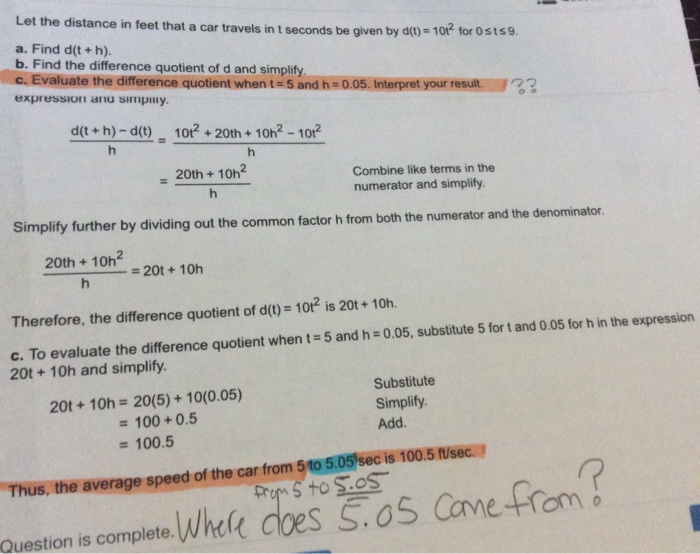 Let the distance in feet that a car travels in t seconds be given by d(t) = 10t² for 0≤t≤9.
a. Find d(t + h).
b. Find the difference quotient of d and simplify.
c. Evaluate the difference quotient when t = 5 and h = 0.05. Interpret your result. ??
expression and simplify.
d(t + h) − d(t) / h = 10t² + 20th + 10h² − 10t² / h
= 20th + 10h² / h Combine like terms in the numerator and simplify.
Simplify further by dividing out the common factor h from both the numerator and the denominator.
20th + 10h² / h = 20t + 10h
Therefore, the difference quotient of d(t) = 10t² is 20t + 10h.
c. To evaluate the difference quotient when t = 5 and h = 0.05, substitute 5 for t and 0.05 for h in the expression
20t + 10h and simplify.
20t + 10h = 20(5) + 10(0.05) Substitute
= 100 + 0.5 Simplify.
= 100.5 Add.
Thus, the average speed of the car from 5 to 5.05 sec is 100.5 ft/sec.
from 5 to 5.05
Question is complete. Where does 5.05 come from?